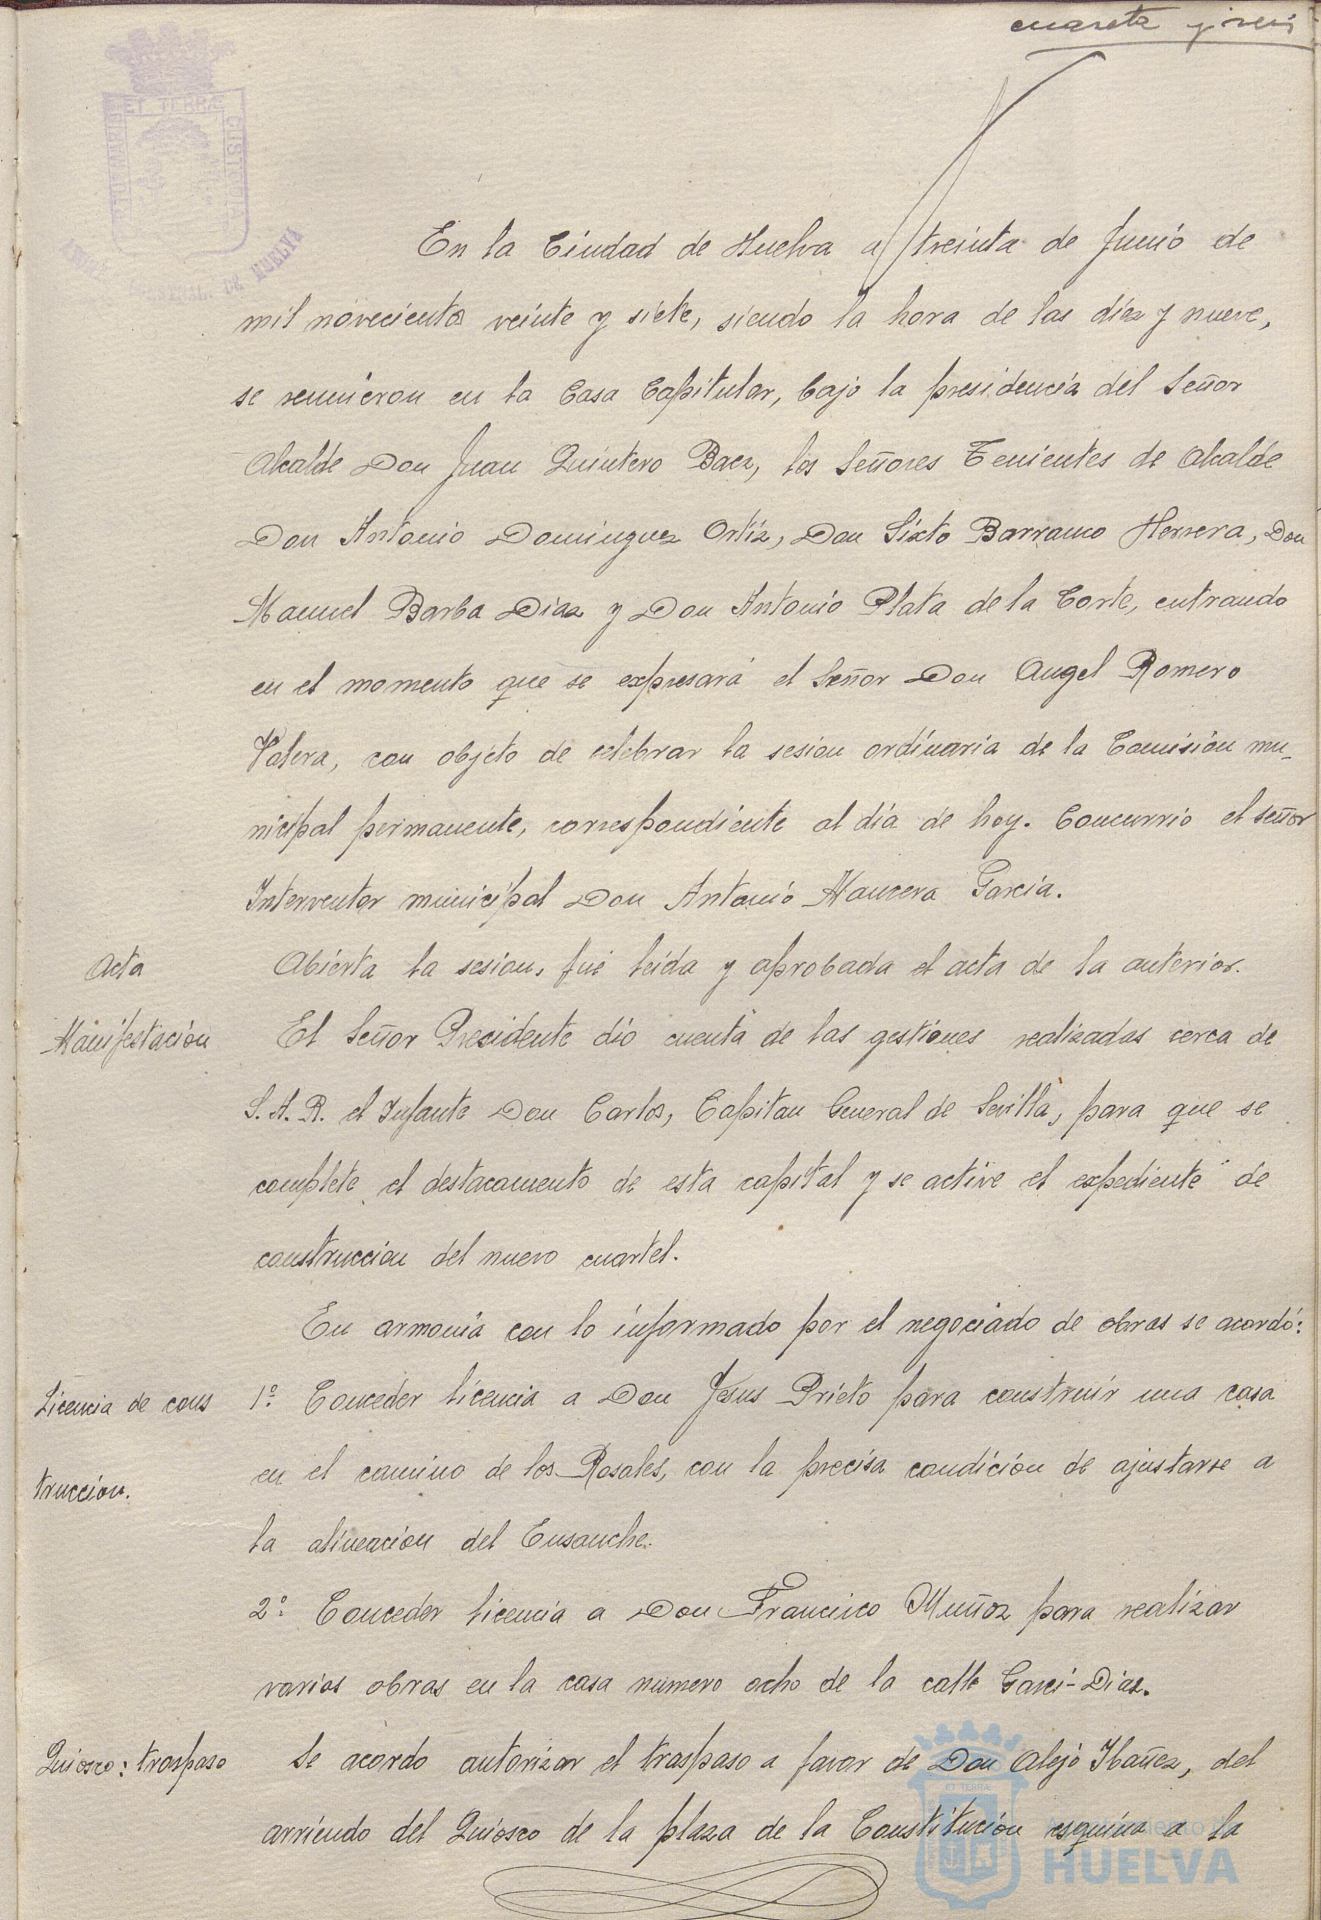 cuareta y seis
ET TERRÆ CUSTODIA
DE HUELVA
En la Ciudad de Huelva a treinta de Junio de
mil novecientos veinte y siete, siendo la hora de las diez y nueve,
se reunieron en la Casa Capitular, bajo la presidencia del Señor
Alcalde Don Juan Quintero Baez, los Señores Tenientes de Alcalde
Don Antonio Dominguez Ortiz, Don Sixto Barranco Herrera, Don
Manuel Barba Diaz y Don Antonio Plata de la Corte, entrando
en el momento que se expresará el Señor Don Angel Romero
Valera, con objeto de celebrar la sesion ordinaria de la Comision mu-
nicipal permanente, correspondiente al día de hoy. Concurrio el señor
Interventor municipal Don Antonio Mancera Garcia.
Acta
Abierta la sesion, fué leida y aprobada el acta de la anterior.
Manifestación
El Señor Presidente dio cuenta de las gestiones realizadas cerca de
S. A. R. el Infante Don Carlos, Capitan General de Sevilla, para que se
complete el destacamento de esta capital y se active el expediente de
construccion del nuevo cuartel.
En armonia con lo informado por el negociado de obras se acordó:
Licencia de cons
1º Conceder licencia a Don Jesus Prieto para construir una casa
en el camino de los Rosales, con la precisa condición de ajustarse a
truccion.
la alineacion del Ensanche.
2º Conceder licencia a Don Francisco Muñoz para realizar
varias obras en la casa numero ocho de la calle Garci-Diaz.
Quiosco: traspaso
Se acordo autorizar el traspaso a favor de Don Alejo Ibañez, del
arriendo del Quiosco de la plaza de la Constitución esquina a la
HUELVA